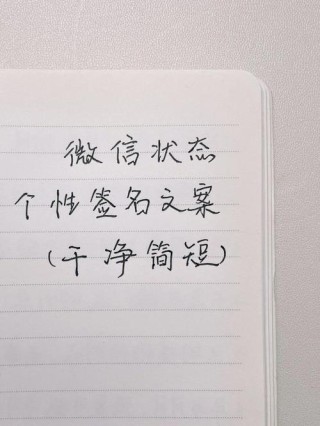 微信状态
个性签名文案
(干净简短)